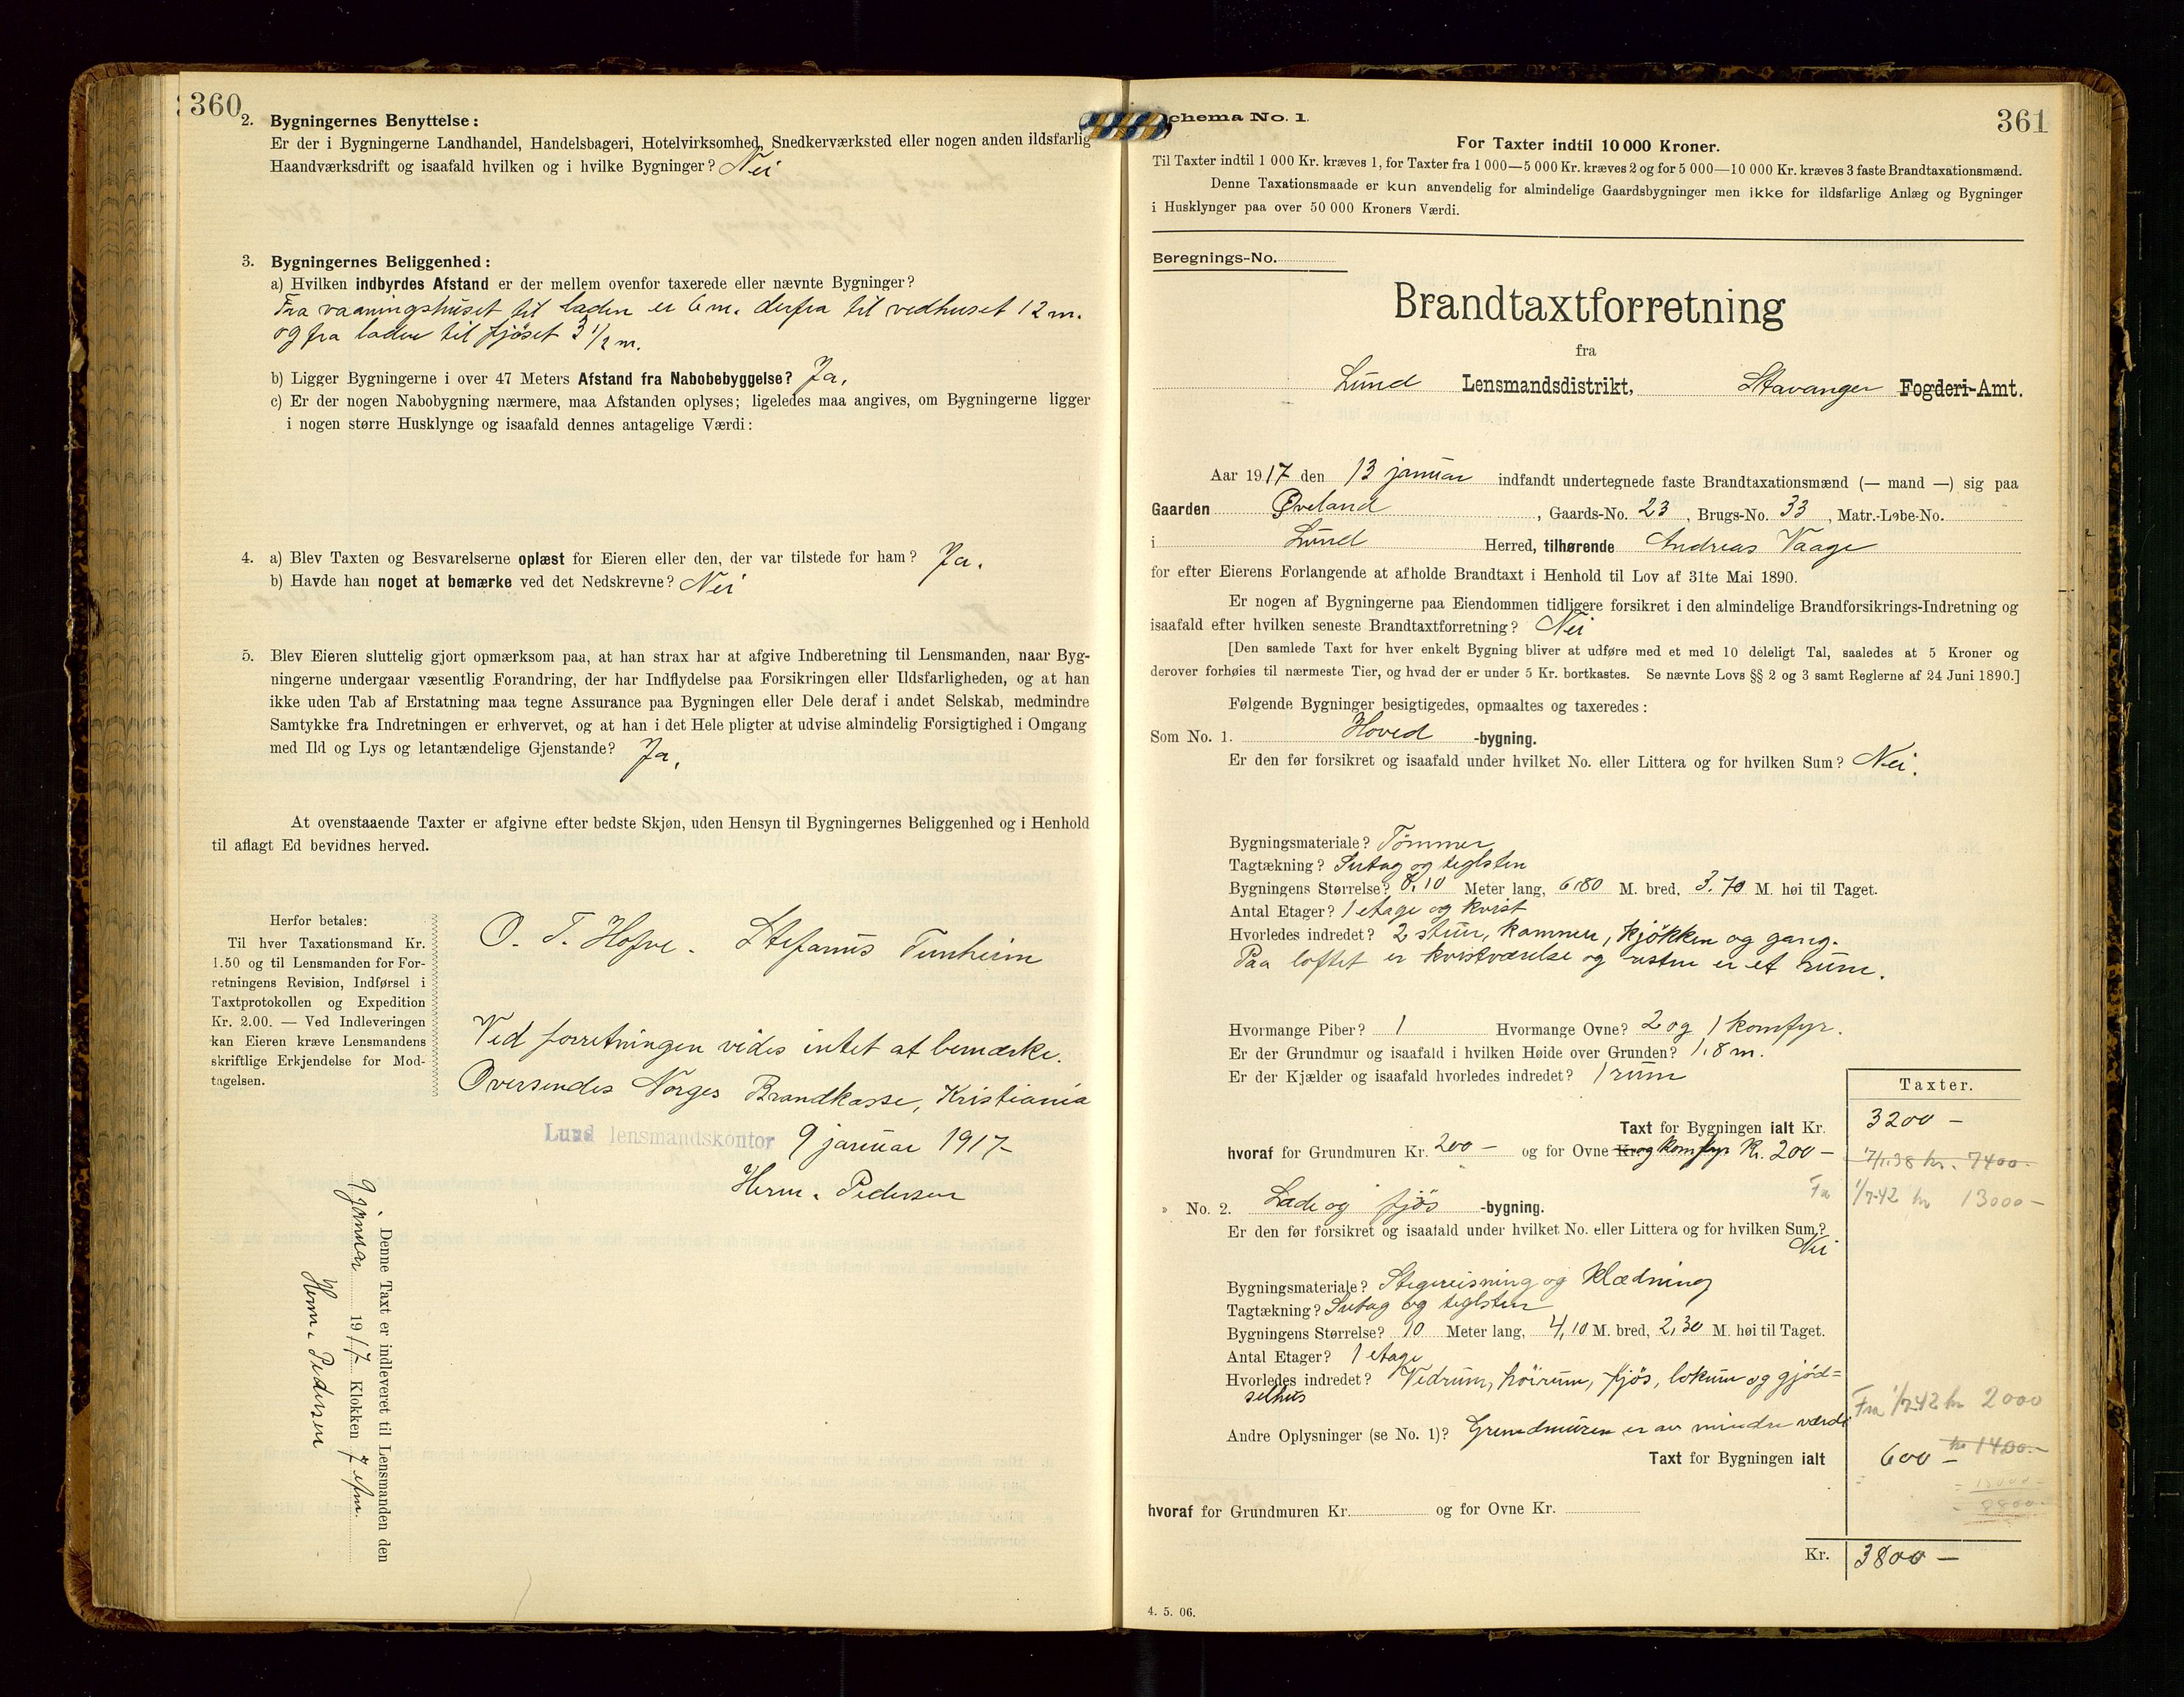 360
2. Bygningernes Benyttelse:
Er der i Bygningerne Landhandel, Handelsbageri, Hotelvirksomhed, Snedkerværksted eller nogen anden ildsfarlig
Haandværksdrift og isaafald hvilken og i hvilke Bygninger? Nei
3. Bygningernes Beliggenhed:
a) Hvilken indbyrdes Afstand er der mellem ovenfor taxerede eller nævnte Bygninger?
Fra vaaningshuset til laden er 6 m. derfra til vedhuset 12 m.
og fra laden til fjöset 3 1/2 m.
b) Ligger Bygningerne i over 47 Meters Afstand fra Nabobebyggelse? Ja.
c) Er der nogen Nabobygning nærmere, maa Afstanden oplyses; ligeledes maa angives, om Bygningerne ligger
i nogen større Husklynge og isaafald dennes antagelige Værdi:
4. a) Blev Taxten og Besvarelserne oplæst for Eieren eller den, der var tilstede for ham? Ja.
b) Havde han noget at bemærke ved det Nedskrevne? Nei
5. Blev Eieren sluttelig gjort opmærksom paa, at han strax har at afgive Indberetning til Lensmanden, naar Byg-
ningerne undergaar væsentlig Forandring, der har Indflydelse paa Forsikringen eller Ildsfarligheden, og at han
ikke uden Tab af Erstatning maa tegne Assurance paa Bygningen eller Dele deraf i andet Selskab, medmindre
Samtykke fra Indretningen er erhvervet, og at han i det Hele pligter at udvise almindelig Forsigtighed i Omgang
med Ild og Lys og letantændelige Gjenstande? Ja.
At ovenstaaende Taxter er afgivne efter bedste Skjøn, uden Hensyn til Bygningernes Beliggenhed og i Henhold
til aflagt Ed bevidnes herved.
Herfor betales:
Til hver Taxationsmand Kr.
1.50 og til Lensmanden for For-
retningens Revision, Indførsel i
Taxtprotokollen og Expedition
Kr. 2.00. — Ved Indleveringen
kan Eieren kræve Lensmandens
skriftlige Erkjendelse for Mod-
tagelsen.
O. T. Hofve. Stefanus Tunheim
Ved forretningen vides intet at bemærke.
Oversendes Norges Brandkasse, Kristiania
Lund lensmandskontor 9 januar 1917
Herm. Pedersen
Denne Taxt er indleveret til Lensmanden den
9 januar 1917 Klokken 7 efm.
Herm. Pedersen
361
Schema No. 1.
For Taxter indtil 10 000 Kroner.
Til Taxter indtil 1 000 Kr. kræves 1, for Taxter fra 1 000—5 000 Kr. kræves 2 og for 5 000—10 000 Kr. kræves 3 faste Brandtaxationsmænd.
Denne Taxationsmaade er kun anvendelig for almindelige Gaardsbygninger men ikke for ildsfarlige Anlæg og Bygninger
i Husklynger paa over 50 000 Kroners Værdi.
Beregnings-No.
Brandtaxtforretning
fra
Lund Lensmandsdistrikt, Stavanger Fogderi-Amt.
Aar 1917 den 13 januar indfandt undertegnede faste Brandtaxationsmænd (— mand —) sig paa
Gaarden Øveland, Gaards-No. 23, Brugs-No. 33, Matr.-Løbe-No.
i Lund Herred, tilhørende Andreas Vaage
for efter Eierens Forlangende at afholde Brandtaxt i Henhold til Lov af 31te Mai 1890.
Er nogen af Bygningerne paa Eiendommen tidligere forsikret i den almindelige Brandforsikrings-Indretning og
isaafald efter hvilken seneste Brandtaxtforretning? Nei
[Den samlede Taxt for hver enkelt Bygning bliver at udføre med et med 10 deleligt Tal, saaledes at 5 Kroner og
derover forhøies til nærmeste Tier, og hvad der er under 5 Kr. bortkastes. Se nævnte Lovs §§ 2 og 3 samt Reglerne af 24 Juni 1890.]
Følgende Bygninger besigtigedes, opmaaltes og taxeredes:
Som No. 1. Hoved-bygning.
Er den før forsikret og isaafald under hvilket No. eller Littera og for hvilken Sum? Nei.
Bygningsmateriale? Tømmer
Tagtækning? Sutag og teglsten
Bygningens Størrelse? 8.10 Meter lang, 6.80 M. bred, 3.70 M. høi til Taget.
Antal Etager? 1 etage og kvist
Hvorledes indredet? 2 stuer, kammer, kjökken og gang.
Paa loftet er kvistværelse og resten er et rum.
Hvormange Piber? 1 Hvormange Ovne? 2 og 1 komfyr.
Er der Grundmur og isaafald i hvilken Høide over Grunden? 1.8 m.
Er der Kjælder og isaafald hvorledes indredet? 1 rum
Taxter.
Taxt for Bygningen ialt Kr. 3200 —
hvoraf for Grundmuren Kr. 200 — og for Ovne Kr. og komfyr Kr. 200 —
1/1.38 kr. 7400.-
Fra 1/7-42 kr 13000 —
» No. 2. Lade og fjös-bygning.
Er den før forsikret og isaafald under hvilket No. eller Littera og for hvilken Sum?
Nei
Bygningsmateriale? Stegreisning og klædning
Tagtækning? Sutag og teglsten
Bygningens Størrelse? 10 Meter lang, 4,10 M. bred, 2,30 M. høi til Taget.
Antal Etager? 1 etage
Hvorledes indredet? Vedrum, höirum, fjös, lokum og gjöd=
selhus
Fra 1/7-42 kr 2000
Andre Oplysninger (se No. 1)? Grundmuren er av mindre værdi
Taxt for Bygningen ialt 600 — kr 1400.-
8800
hvoraf for Grundmuren Kr. og for Ovne Kr.
Kr. 3800 —
4. 5. 06.